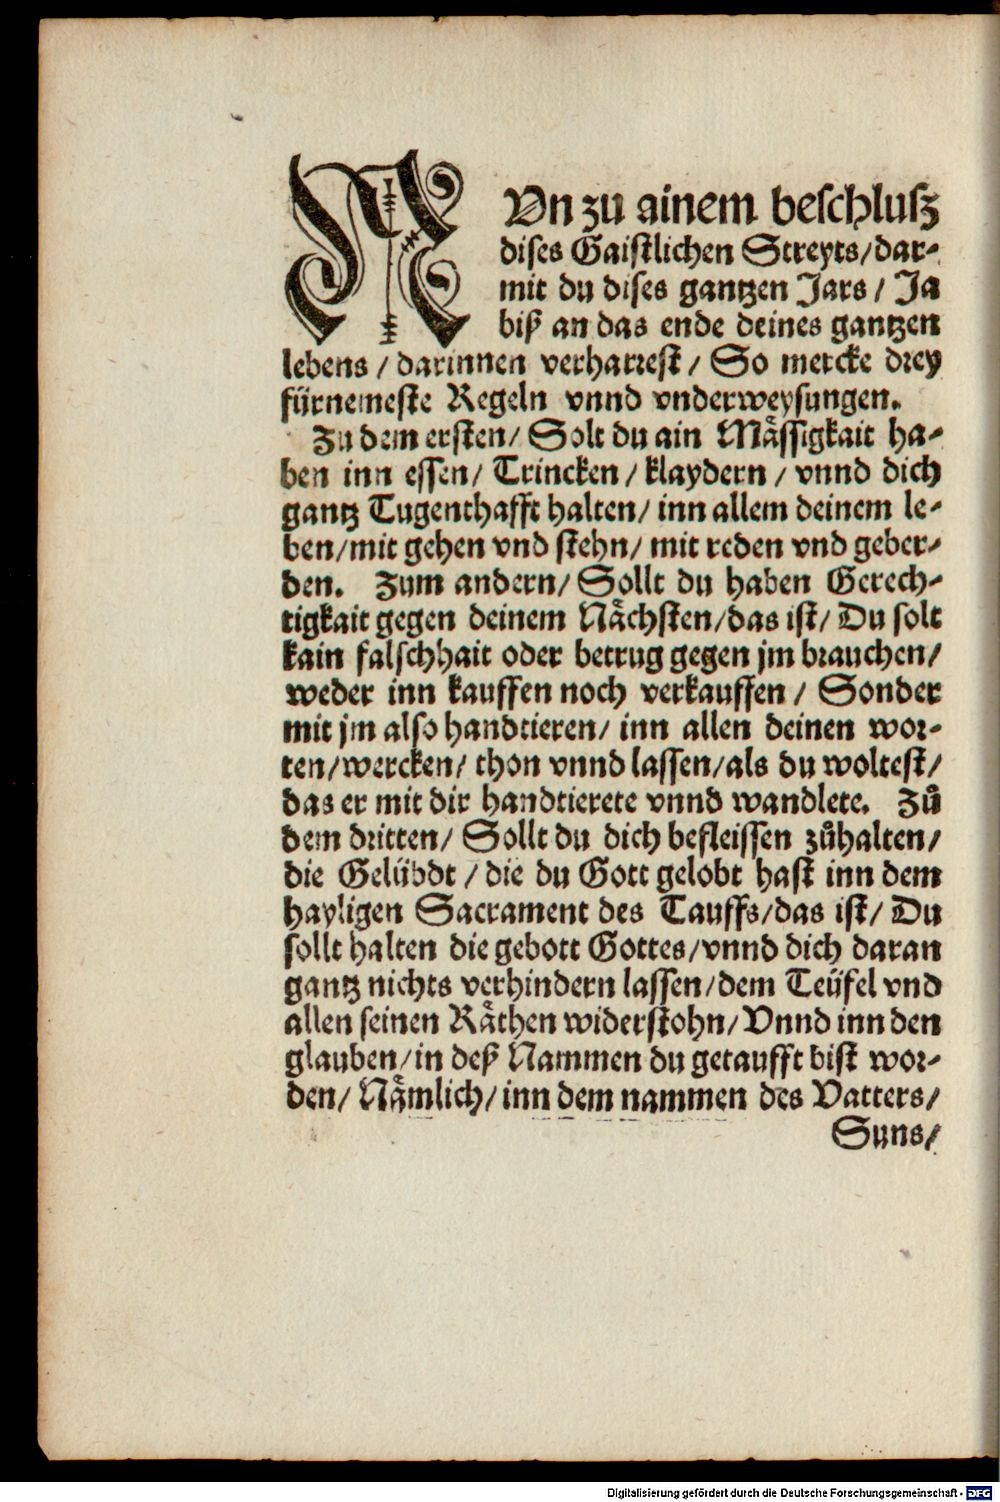 NVn zu ainem beschlusz
dises Gaistlichen Streyts/dar-
mit du dises gantzen Jars / Ja
biß an das ende deines gantzen
lebens / darinnen verharrest / So mercke drey
fürnemeste Regeln vnnd vnderweysungen.
Zu dem ersten/ Solt du ain Mässigkait ha-
ben inn essen/ Trincken / klaydern / vnnd dich
gantz Tugenthafft halten/ inn allem deinem le-
ben/mit gehen vnd stehn/ mit reden vnd geber-
den. Zum andern/ Sollt du haben Gerech-
tigkait gegen deinem Nächsten/das ist/ Du solt
kain falschhait oder betrug gegen jm brauchen/
weder inn kauffen noch verkauffen / Sonder
mit jm also handtieren/ inn allen deinen wor-
ten/wercken/ thon vnnd lassen/als du woltest/
das er mit dir handtierete vnnd wandlete. Zů
dem dritten/ Sollt du dich befleissen zůhalten/
die Gelübdt / die du Gott gelobt hast inn dem
hayligen Sacrament des Tauffs/das ist/ Du
sollt halten die gebott Gottes/vnnd dich daran
gantz nichts verhindern lassen/dem Teüfel vnd
allen seinen Räthen widerstohn/ Vnnd inn den
glauben/in deß Nammen du getaufft bist wor-
den/ Nämlich/ inn dem nammen des Vatters/
Suns/
Digitalisierung gefördert durch die Deutsche Forschungsgemeinschaft - DFG